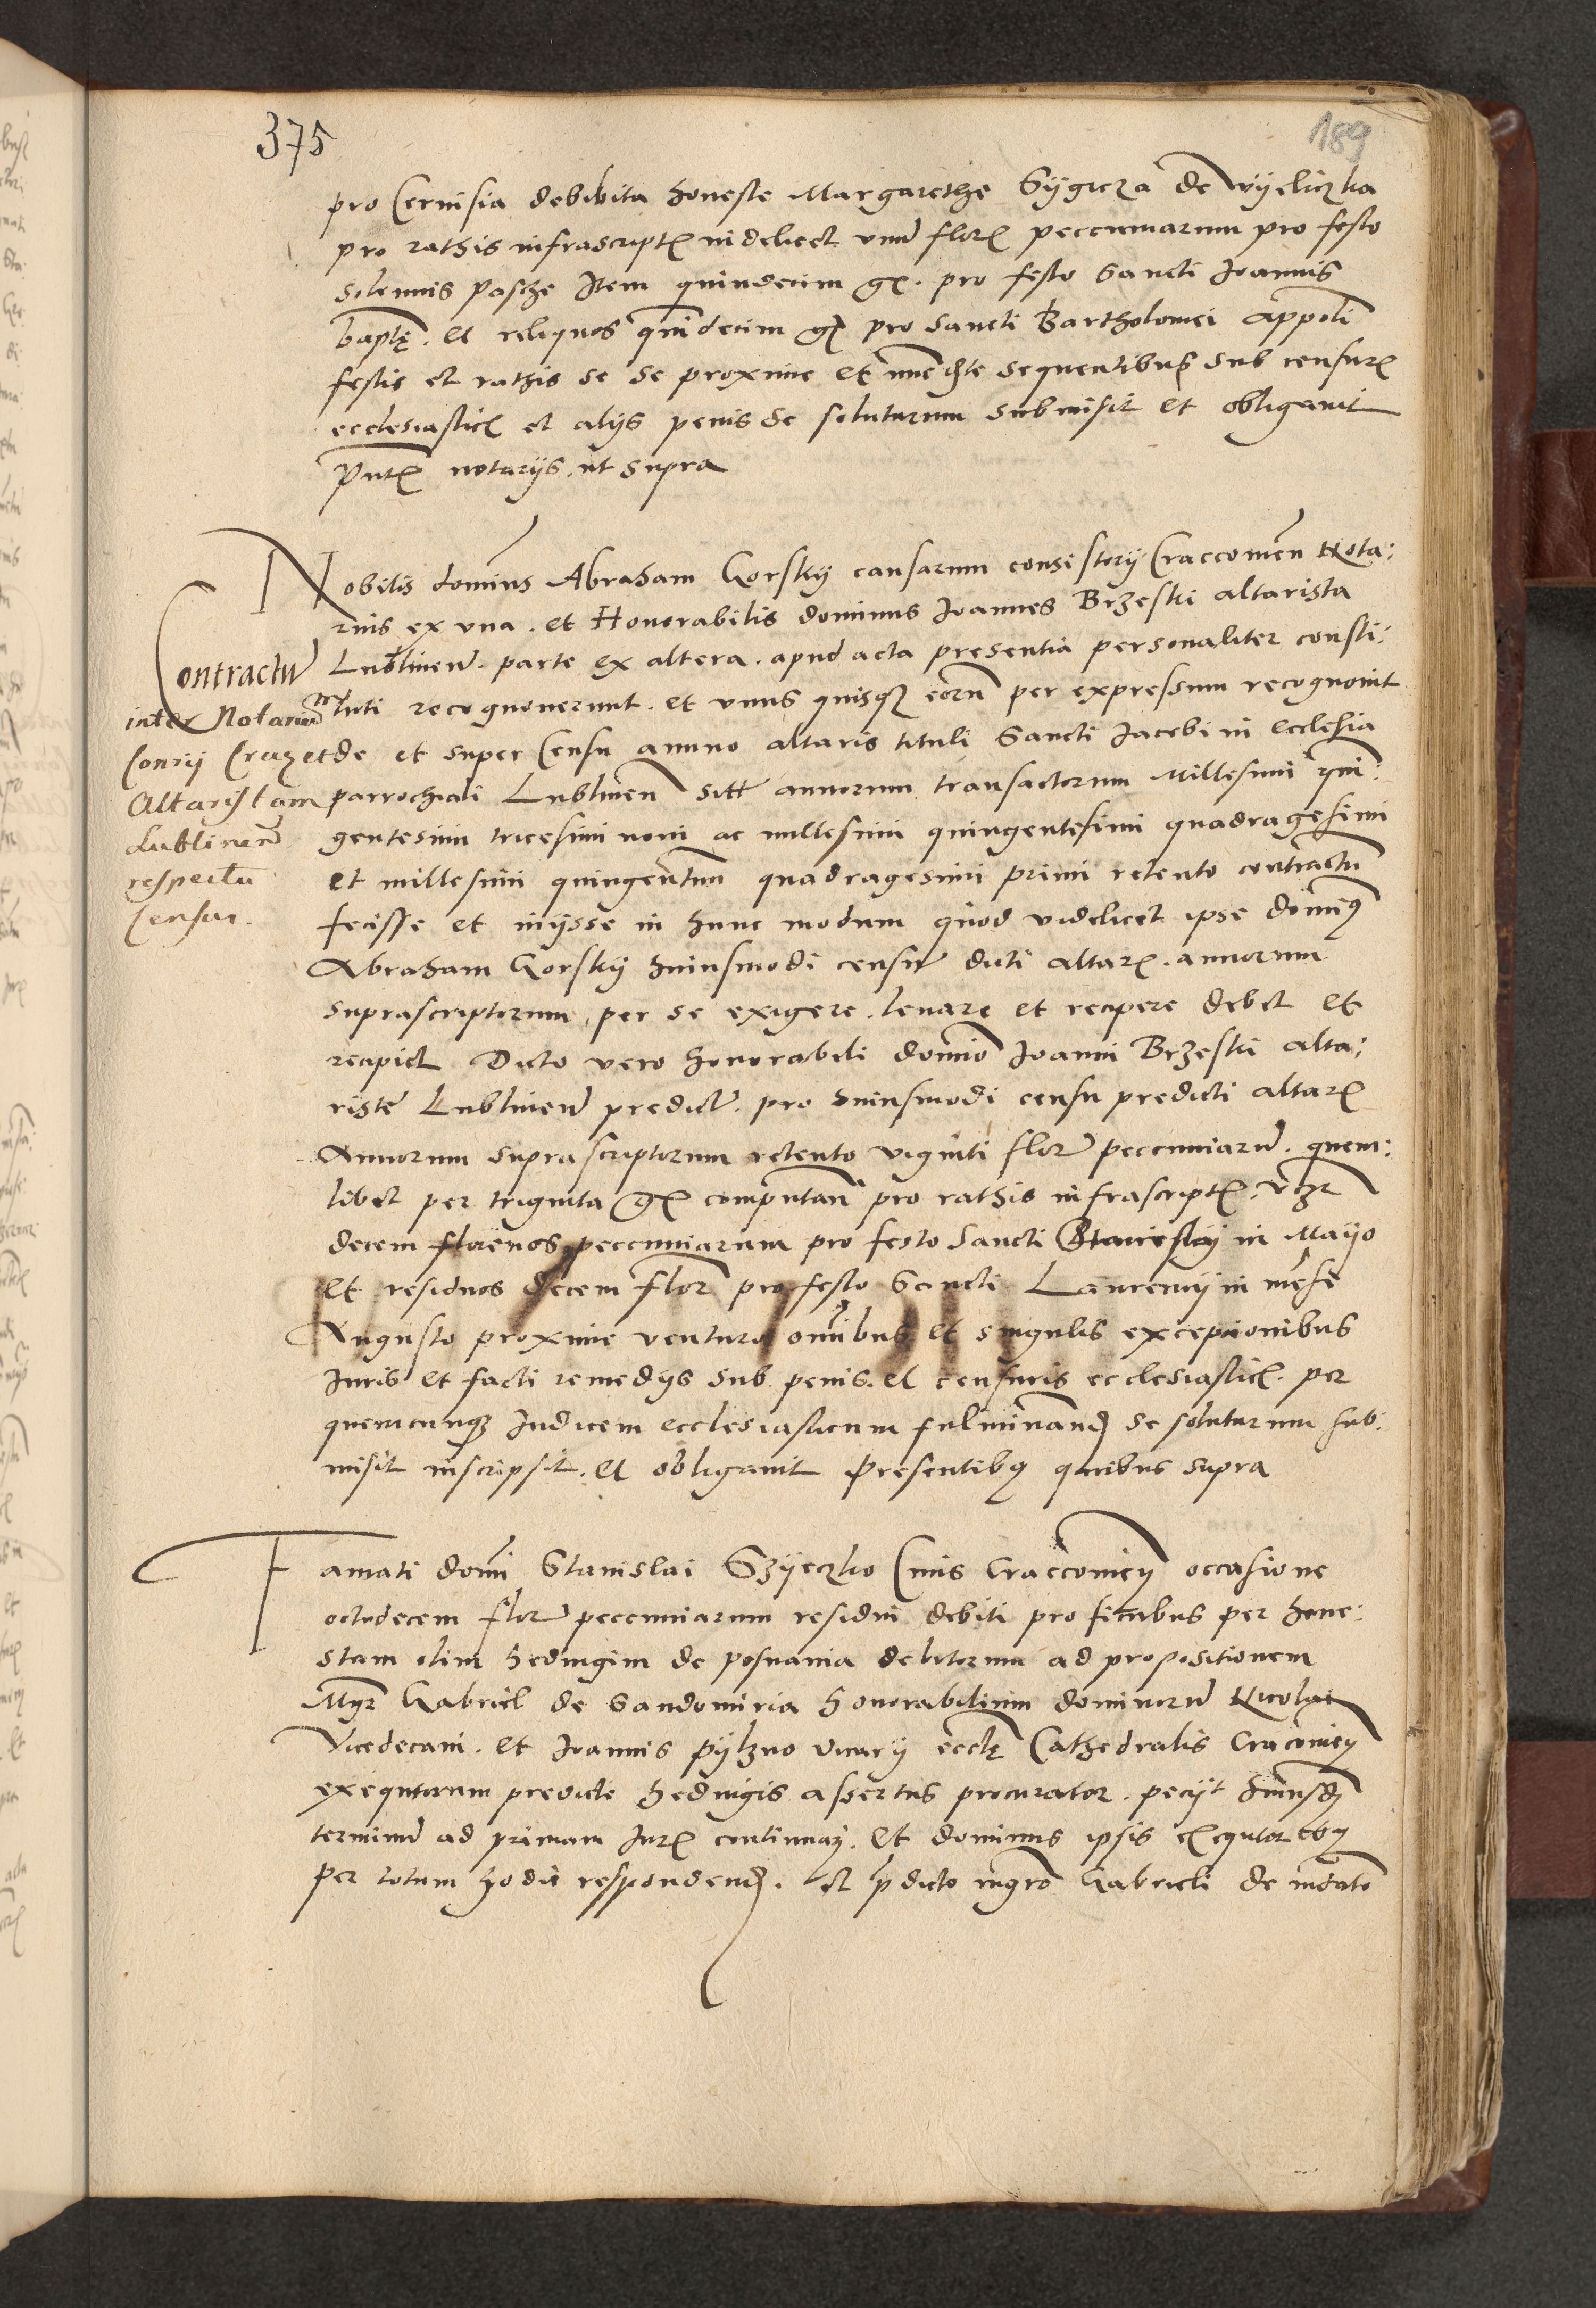 375
189
pro Cervisia debibita honeste Margarethe Gÿgrcza de wÿeliczka
pro rathis infrascript videlicet unu flor peccuniarum pro festo
solennis pasche Item quindecim gr. pro festo Sancti Joannis
bapte. et reliquos quindecim gr pro Sancti Bartholomei appoli
festis et rathis se se proxime et immediate sequentibus sub censur
ecclesiastic et alÿs penis se soluturum submisit et obligavit
pntr notarÿs ut supra
Nobilis dominus Abraham Gorskÿ causarum consistorÿ Craccovien Nota:
rius ex una. et Honorabilis dominus Joannes Brzeski altarista
Lublinen. parte ex altera. apud acta presentia personaliter consti:
tuti recognoverunt. et unus quisque eorum per expressum recognovit
de et super Censu annuo altaris tituli Sancti Jacobi in ecclesia
parrochiali Lublinen sitt annorum transactorum Millesimi quin:
gentesimi tricesimi noni ac millesimi quingentesimi quadragesimi
et millesimi quingentimi quadragesimi primi retento contractu
fecisse et inÿsse in hunc modum quod videlicet ipse dominus
Abraham Gorskÿ huiusmodi censu dicti altar. annorum
suprascriptorum per se exigere. levare et recipere debet et
recipiet Dicto vero honorabili domino Joanni Brzeski alta:
riste Lublinen predict. pro huiusmodi censu predicti altar
Annorum suprascriptorum retento viginti flor peccuniaru. quem:
libet per triginta gr computan pro rathis infrascript. vczt
decem florenos peccuniarum pro festo Sancti Stanislaÿ in Mayo
et residuos decem flor pro festo Sancti Laurentÿ in mense
Augusto proxime venturo omnibus et singulis exceptionibus
Juris et facti remedÿs sub penis. et censuris ecclesiastic. per
quemcunque Judicem ecclesiasticum fulminand se soluturum sub:
misit inscripsit. et obligavit Presentibus quibus supra
Contractu
inter Notariu
Consÿ Crac et
Altaristam
Lublinen
respectu
Census.
Famati domi Stanislai Szÿeczko Civis Craccovien occasione
octodecem flor peccuniarum residui debiti pro ficubus per hone:
stam olim hedvigim de posnania debitorum ad propositionem
Mgr Gabriel de Sandomiria Honorabilium dominoru Nicolai
Vicedecani. et Joannis pÿlzno vicarÿ eccle Cathedralis Cracovien
exequtorum predicte hedvigis assertus procurator. pecÿt huiusm
terminu ad primam Jur continuari. et dominus ipsis exequtoribus
per totum hodie respondend. et pdicto mgro Gabrieli de mdato